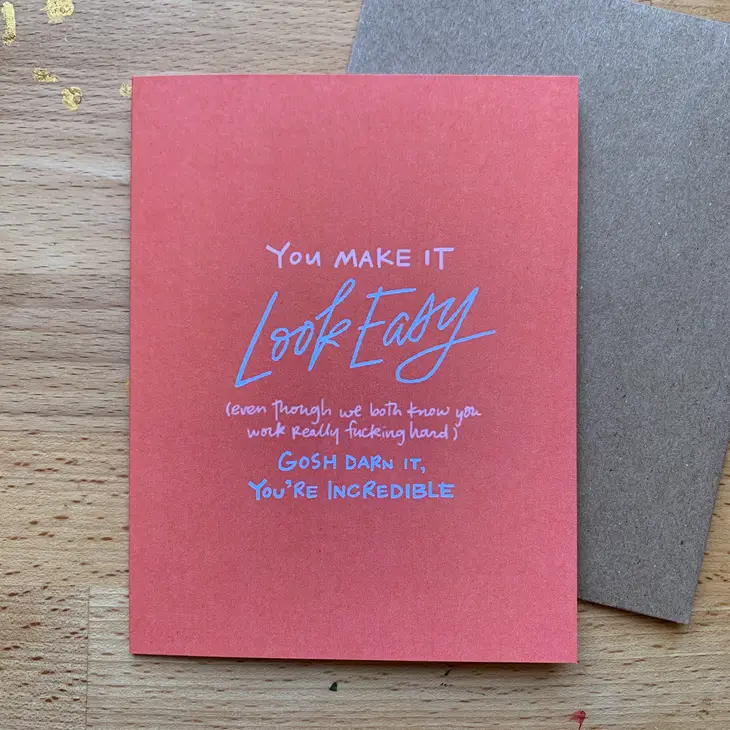 You MAKE IT
Look Easy
(even though we both know you
work really fucking hard)
GOSH DARN IT,
You'RE INCREDIBLE